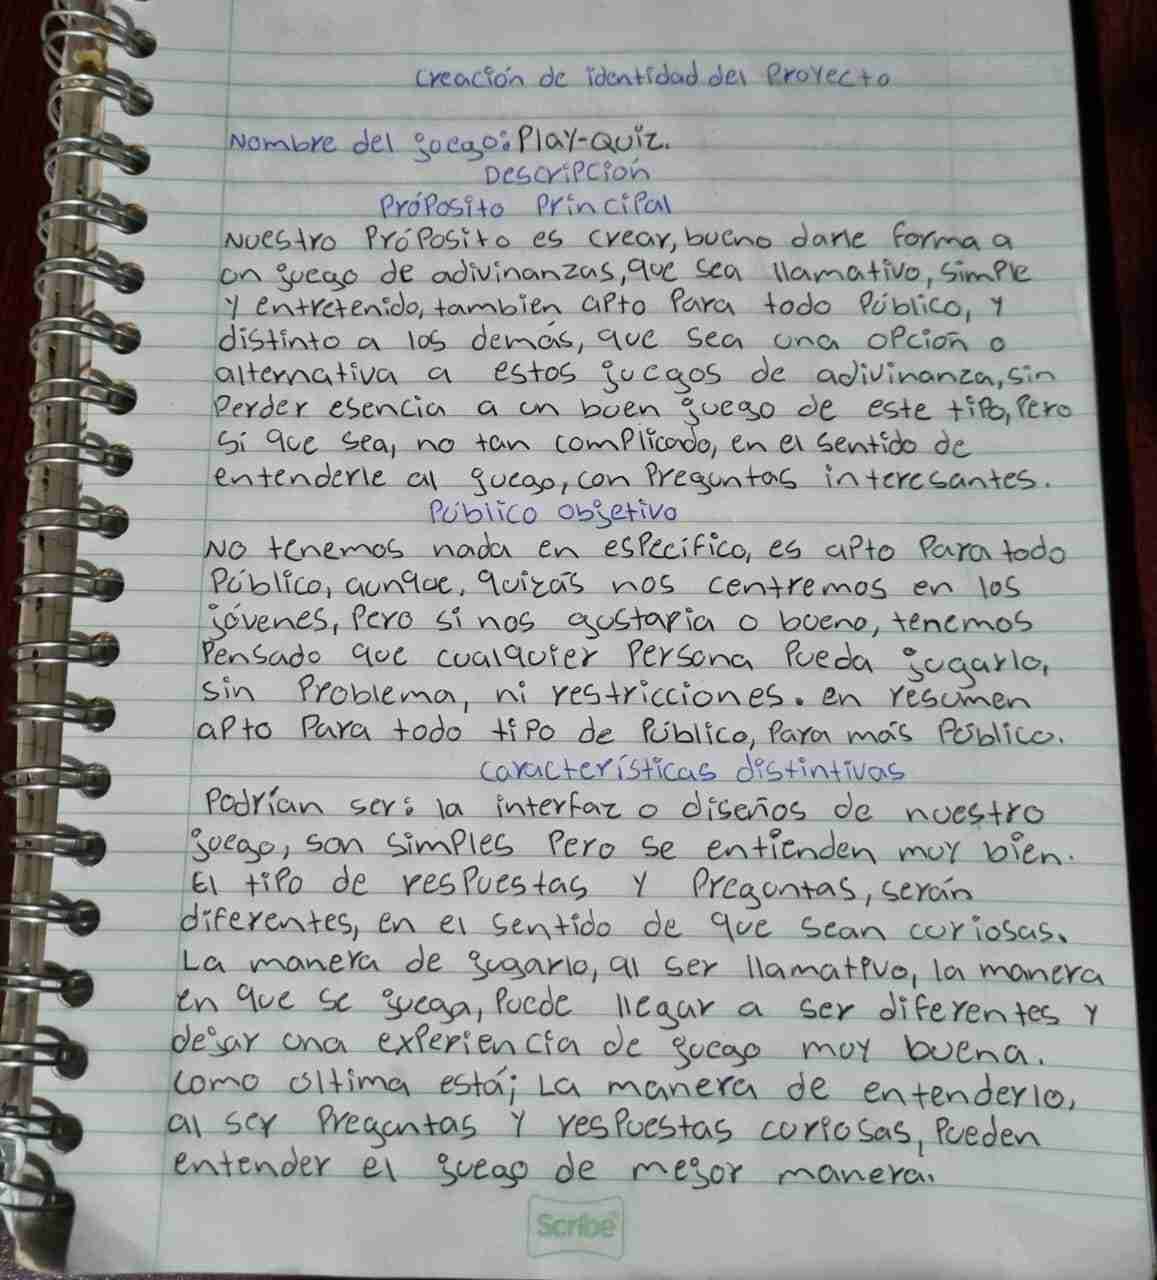 Creación de identidad del Proyecto
Nombre del juego: Play-Quiz.
Descripción
Próposito Principal
Nuestro Próposito es crear, bueno darle forma a
un juego de adivinanzas, que sea llamativo, simple
y entretenido, tambien apto Para todo Público, y
distinto a los demás, que sea una opción o
alternativa a estos juegos de adivinanza, sin
Perder esencia a un buen juego de este tipo, Pero
si que sea, no tan complicado, en el sentido de
entenderle al juego, con Preguntas interesantes.
Público objetivo
No tenemos nada en específico, es apto Para todo
Público, aunque, quizás nos centremos en los
jóvenes, Pero si nos gustaria o bueno, tenemos
Pensado que cualquier Persona Pueda jugarlo,
sin Problema, ni restricciones. en resumen
apto Para todo tipo de Público, Para más Público.
Características distintivas
Podrían ser: la interfaz o diseños de nuestro
juego, son simples Pero se entienden muy bien.
El tipo de respuestas y Preguntas, serán
diferentes, en el sentido de que sean curiosas.
La manera de jugarlo, al ser llamativo, la manera
en que se juega, Puede llegar a ser diferentes y
dejar una experiencia de juego muy buena.
como última está; La manera de entenderlo,
al ser Preguntas y respuestas curiosas, Pueden
entender el juego de mejor manera.
Scribe